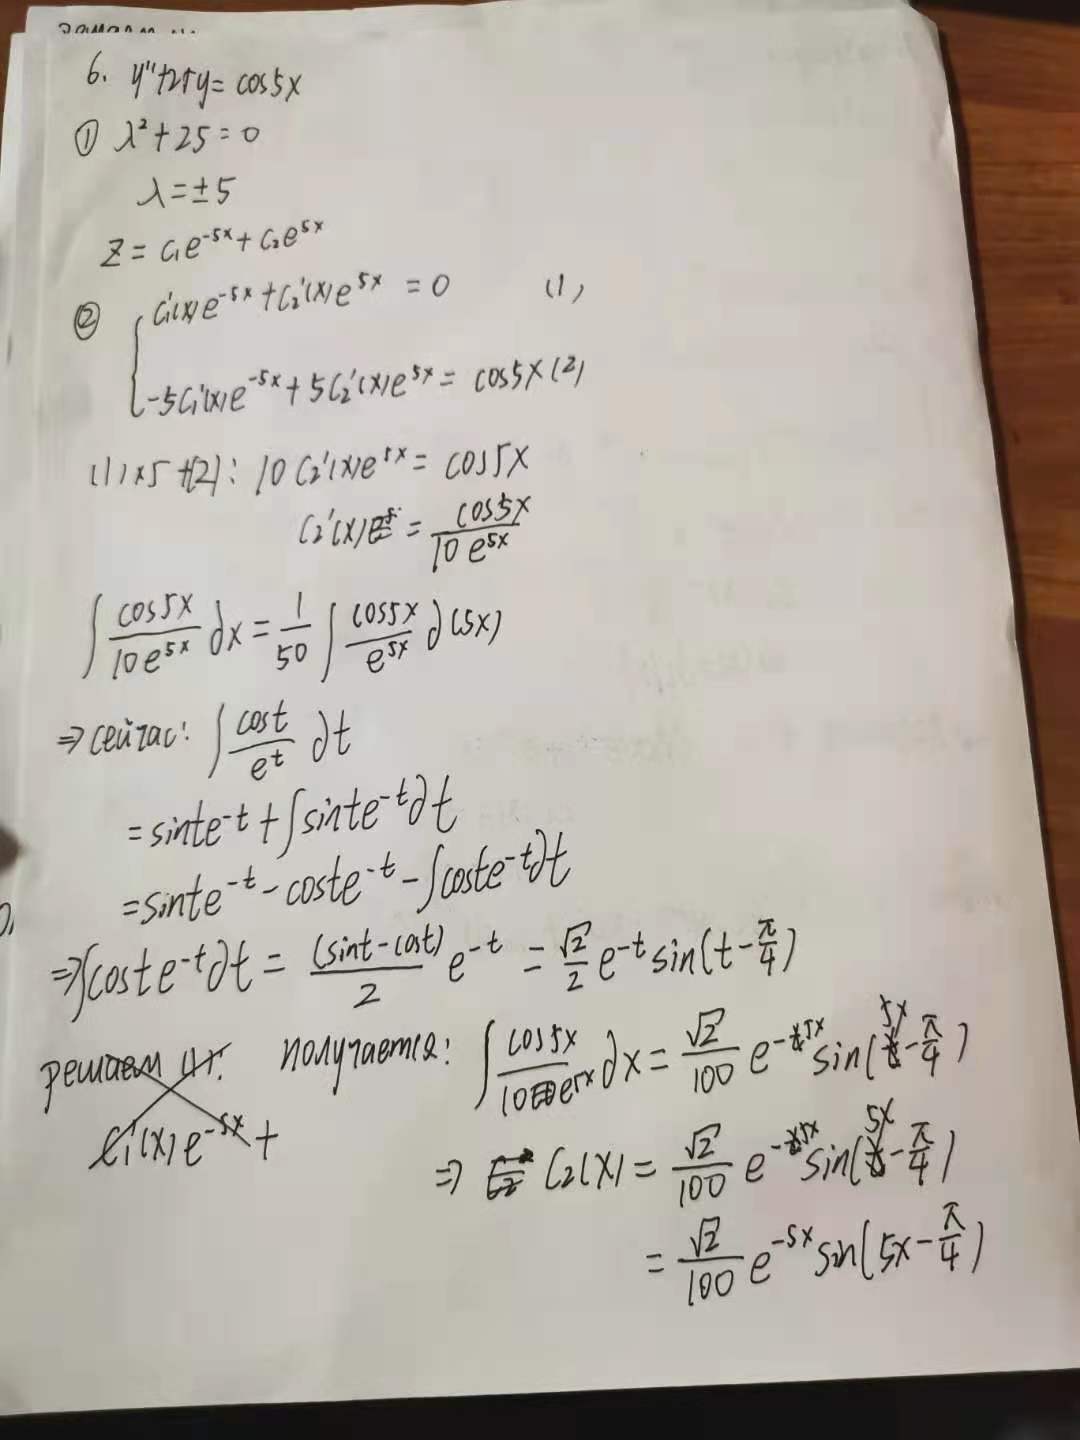 6. y''+25y = cos5x
① λ²+25=0
λ=±5
Z = C₁e⁻⁵ˣ+C₂e⁵ˣ
② { C₁'(x)e⁻⁵ˣ+C₂'(x)e⁵ˣ = 0 (1)
-5C₁'(x)e⁻⁵ˣ+5C₂'(x)e⁵ˣ = cos5x (2)
(1)×5+(2): 10C₂'(x)e⁵ˣ = cos5x
C₂'(x) = cos5x/10e⁵ˣ
∫ cos5x/10e⁵ˣ ∂x = 1/50 ∫ cos5x/e⁵ˣ ∂(5x)
⇒ сейчас: ∫ cost/eᵗ ∂t
= sinte⁻ᵗ+∫sinte⁻ᵗ∂t
= sinte⁻ᵗ-coste⁻ᵗ-∫coste⁻ᵗ∂t
⇒ ∫coste⁻ᵗ∂t = (sint-cost)/2 e⁻ᵗ = √2/2 e⁻ᵗsin(t-π/4)
решаем (1): получается: ∫ cos5x/10e⁵ˣ ∂x = √2/100 e⁻⁵ˣsin(5x-π/4)
C₁'(x)e⁻⁵ˣ+
⇒ C₂(x) = √2/100 e⁻⁵ˣsin(5x-π/4)
= √2/100 e⁻⁵ˣsin(5x-π/4)